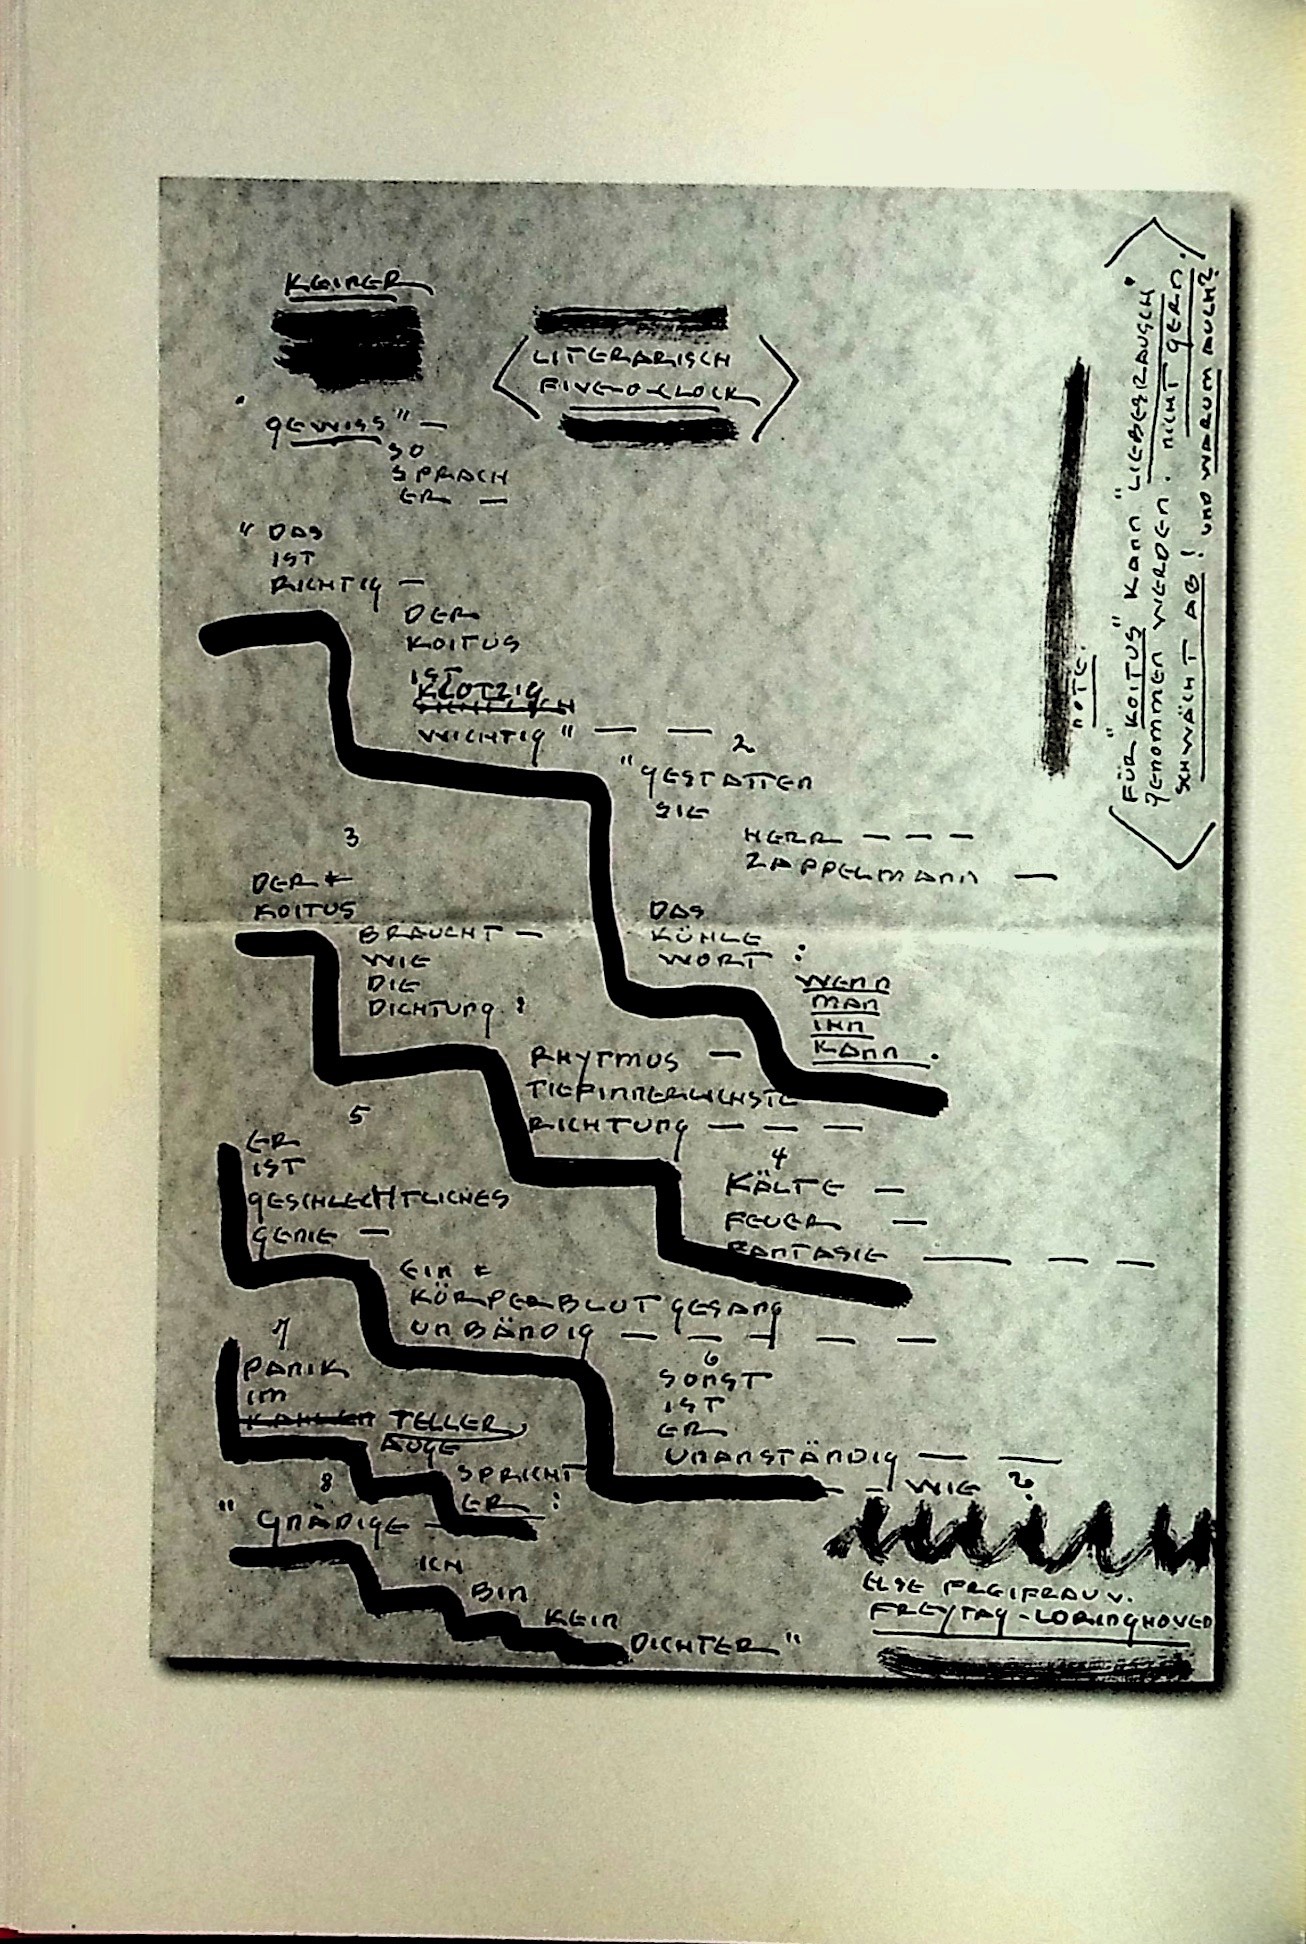 KEINER
LITERARISCH
FIVE-O-CLOCK
"GEWISS" —
SO
SPRACH
ER —
"DAS
IST
RICHTIG —
DER
KOITUS
IST
KLOTZIG
WICHTIG" — —
2
"GESTATTEN
SIE
HERR — — —
ZAPPELMANN —
DAS
KÜHLE
WORT :
WENN
MAN
IHN
KANN .
3
DER
KOITUS
BRAUCHT —
WIE
DIE
DICHTUNG :
RHYTMUS —
TIEFINNERLICHSTE
RICHTUNG — — —
4
KÄLTE —
FEUER —
FANTASIE — — —
5
ER
IST
GESCHLECHTLICHES
GENIE —
EIN
KÖRPERBLUTGESANG
UNBÄNDIG — — — — —
6
SONST
IST
ER
UNANSTÄNDIG — —
— — WIE ?
7
PANIK
IM
TELLER
AUGE
SPRICHT
ER :
8
"GNÄDIGE —
ICH
BIN
KEIN
DICHTER"
ELSE FREIFRAU V.
FREYTAG-LORINGHOVEN
NOTE:
FÜR "KOITUS" KANN "LIEBESRAUSCH"
GENOMMEN WERDEN. NICHT GERN.
SCHWÄCHT AB! UND WARUM AUCH?